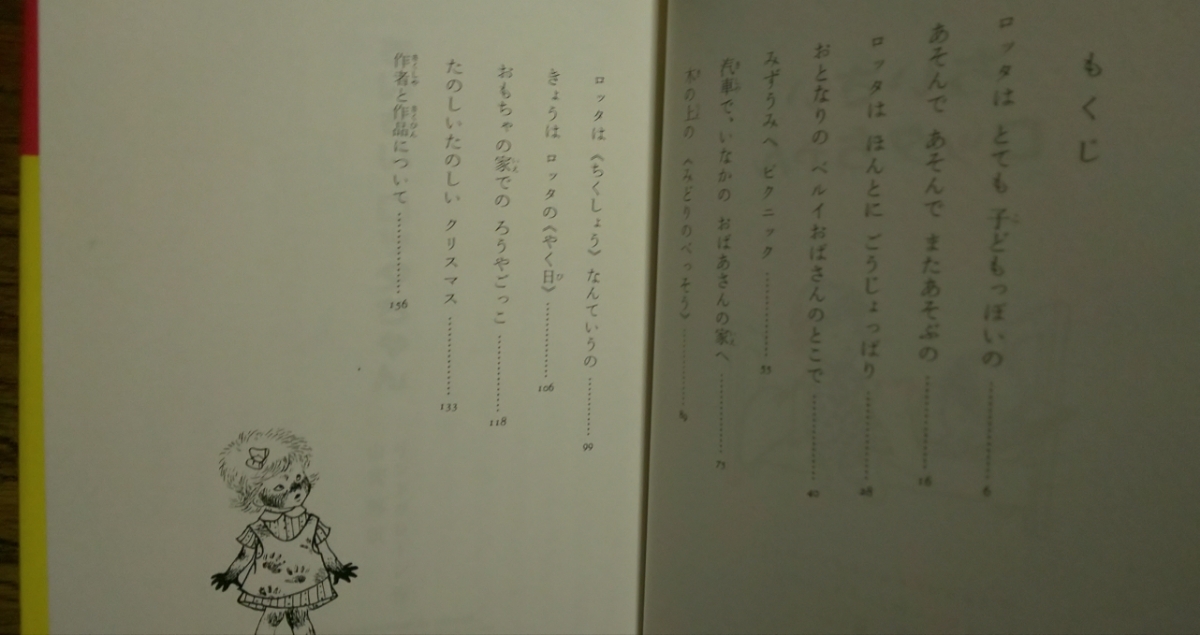 もくじ
ロッタは とても 子どもっぽいの …………… 6
あそんで あそんで またあそぶの …………… 16
ロッタは ほんとに ごうじょっぱり …………… 28
おとなりの ベルイおばさんのとこで …………… 40
みずうみへ ピクニック …………… 55
汽車で、いなかの おばあさんの家へ …………… 71
木の上の 《みどりのべっそう》 ……………
ロッタは 《ちくしょう》 なんていうの …………… 99
きょうは ロッタの《やく日》 …………… 106
おもちゃの家での ろうやごっこ …………… 118
たのしいたのしい クリスマス …………… 133
作者と作品について …………… 156